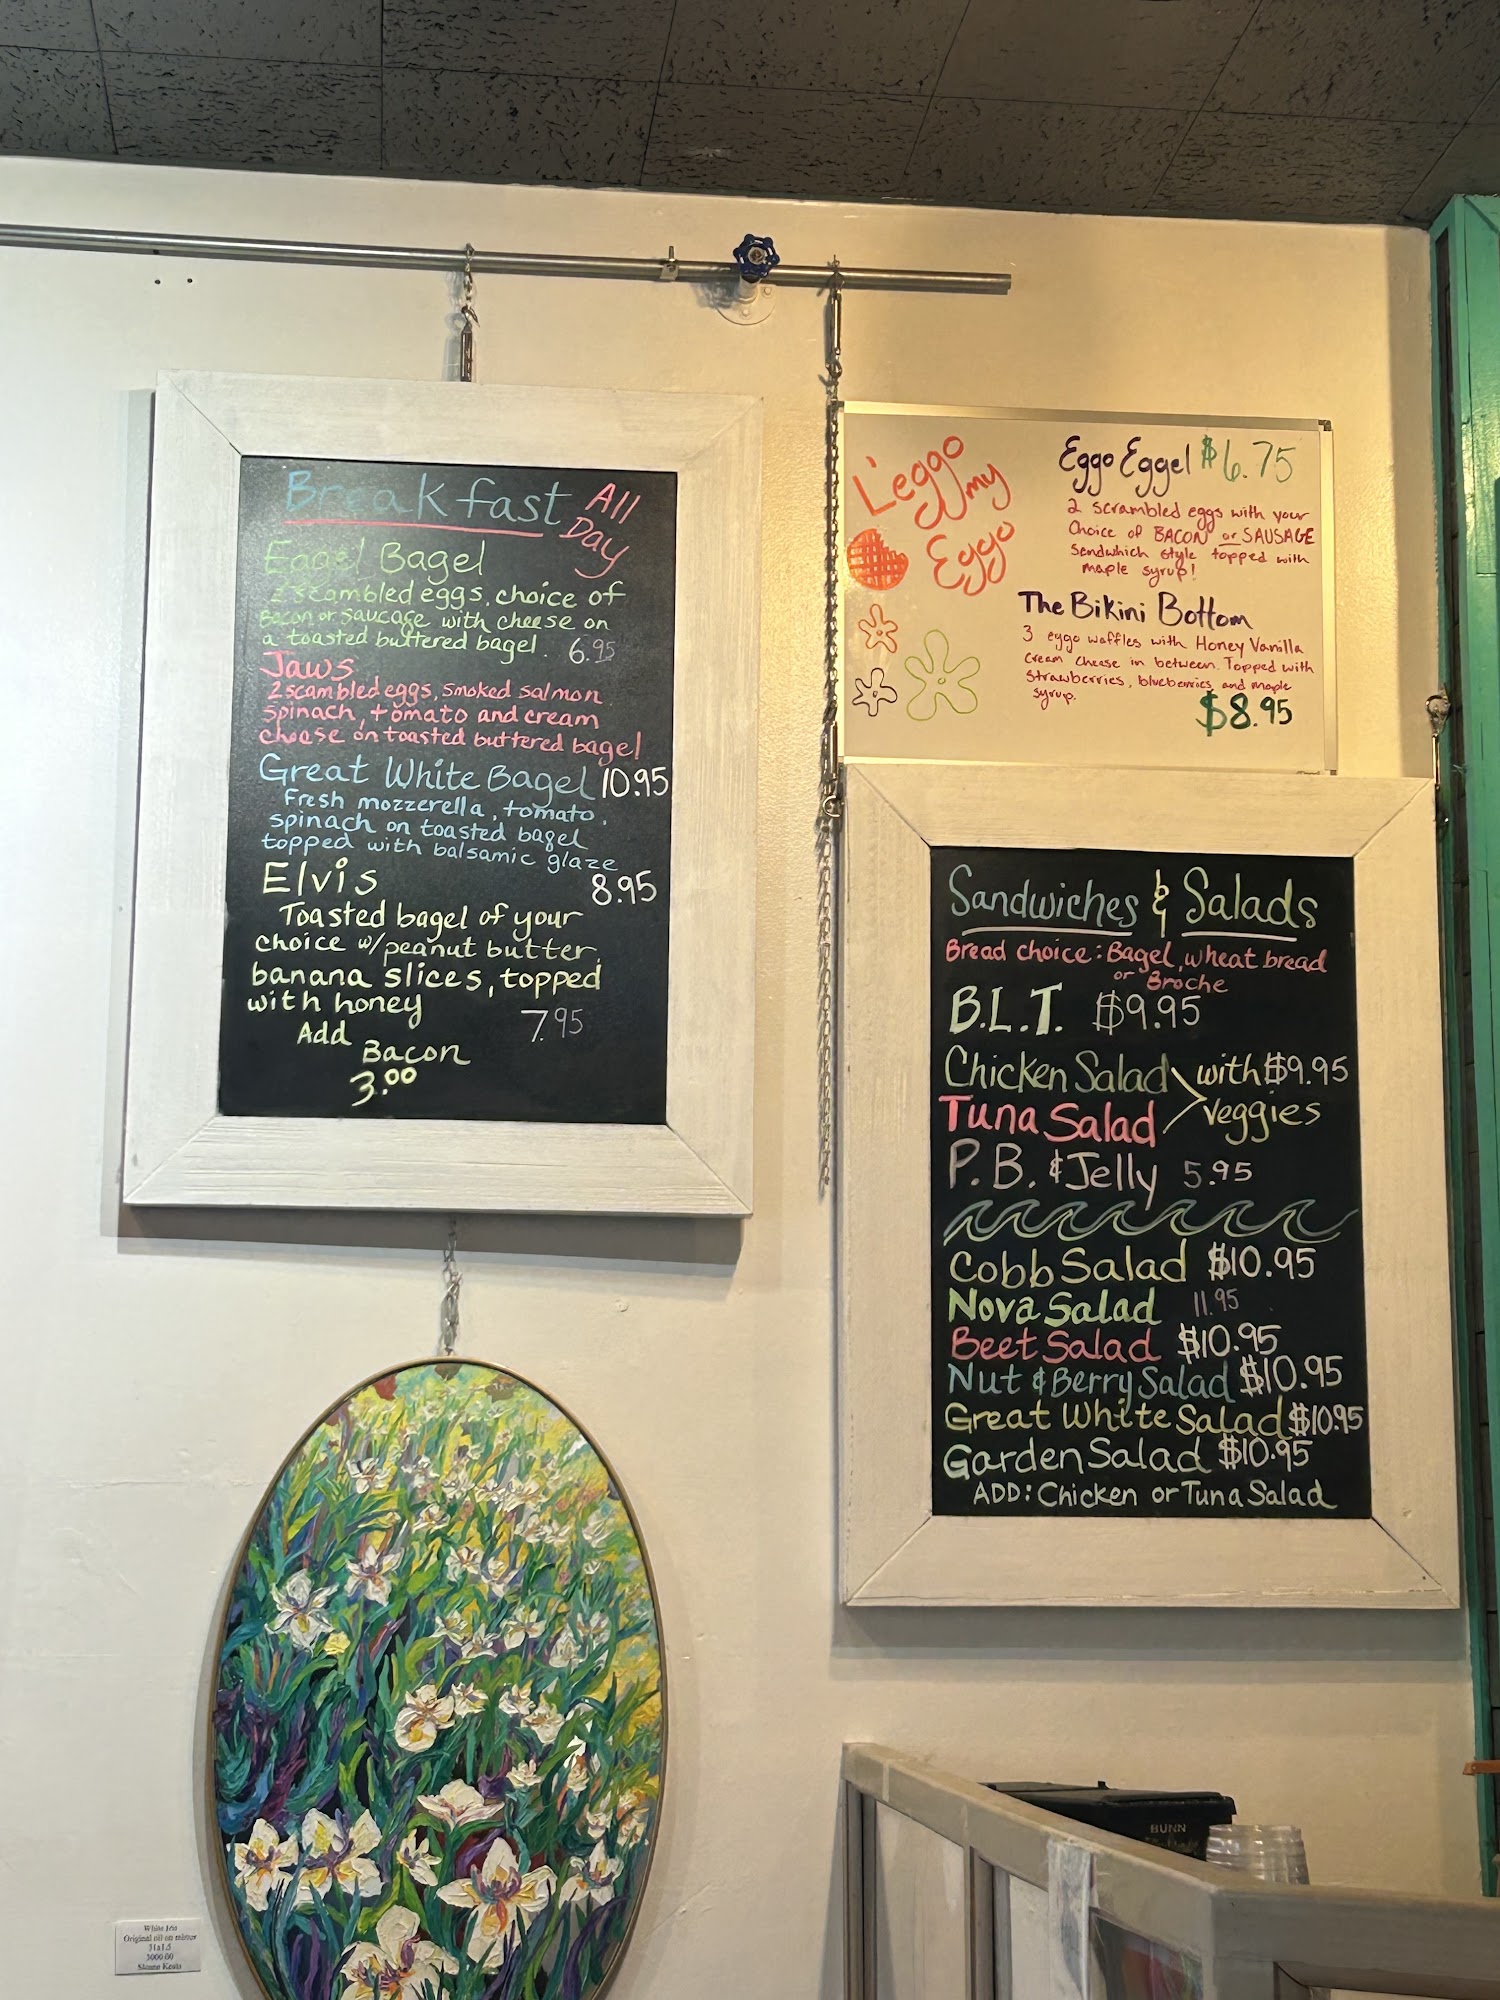 Breakfast All Day
Eggel Bagel
2 scambled eggs, choice of
Bacon or Saucage with cheese on
a toasted buttered bagel. 6.95
Jaws
2 scambled eggs, smoked salmon
spinach, tomato and cream
cheese on toasted buttered bagel
Great White Bagel 10.95
Fresh mozzerella, tomato,
spinach on toasted bagel
topped with balsamic glaze
8.95
Elvis
Toasted bagel of your
choice w/peanut butter,
banana slices, topped
with honey
7.95
Add
Bacon
3.00
L'eggo
my
Eggo
Eggo Eggel $6.75
2 scrambled eggs with your
Choice of BACON or SAUSAGE
Sandwhich style topped with
maple syrup!
The Bikini Bottom
3 eggo waffles with Honey Vanilla
Cream cheese in between. Topped with
strawberries, blueberries, and maple
syrup.
$8.95
Sandwiches & Salads
Bread choice: Bagel, wheat bread
or Broche
B.L.T. $9.95
Chicken Salad with $9.95
Tuna Salad veggies
P.B. & Jelly 5.95
Cobb Salad $10.95
Nova Salad 11.95
Beet Salad $10.95
Nut & Berry Salad $10.95
Great White Salad $10.95
Garden Salad $10.95
ADD: Chicken or Tuna Salad
BUNN
White Iris
Original oil on mirror
3000.00